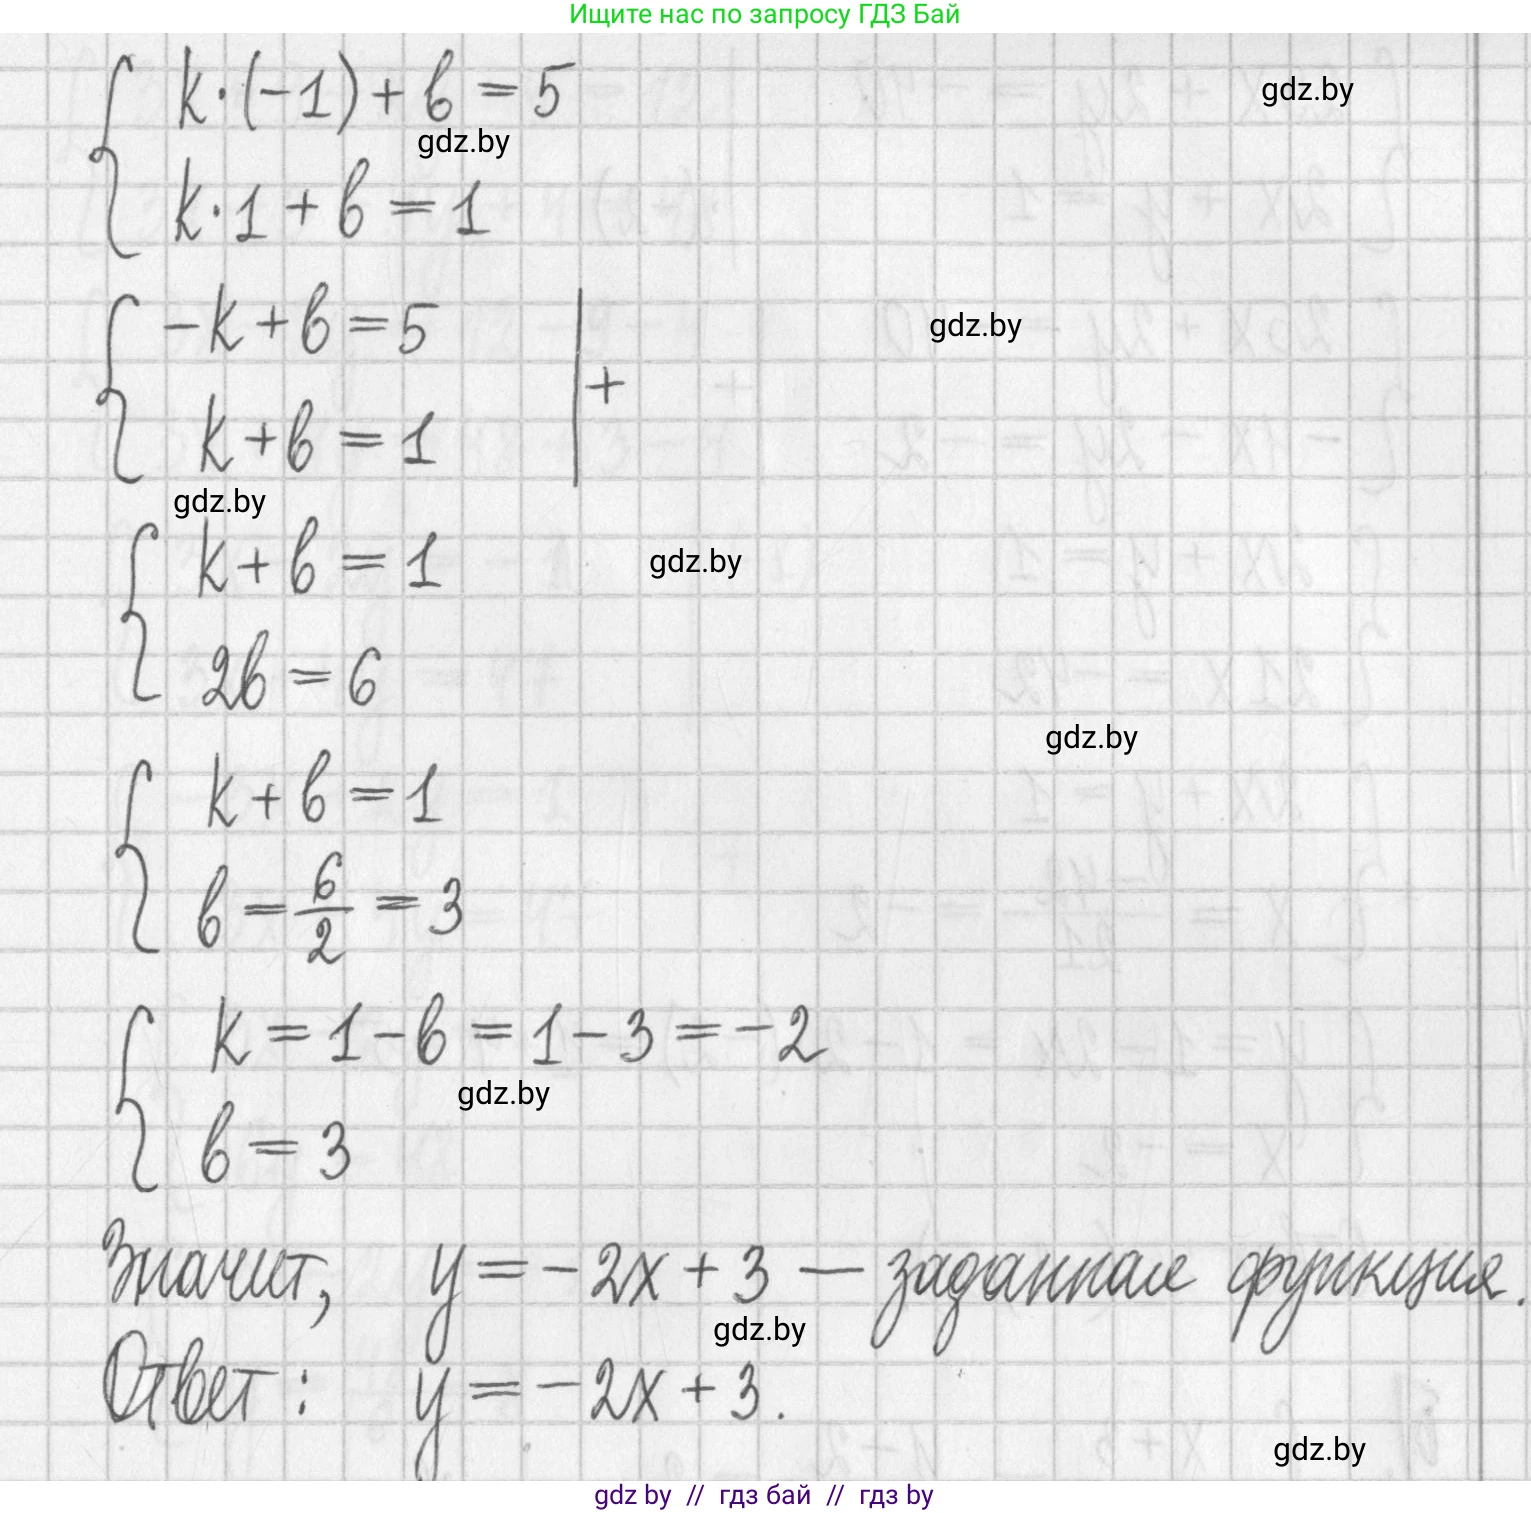 Ищите нас по запросу ГДЗ Бай
k·(-1)+b=5
gdz.by
gdz.by
k·1+b=1
-k+b=5
gdz.by
+
k+b=1
gdz.by
k+b=1
gdz.by
2b=6
gdz.by
k+b=1
b=6/2=3
k=1-b=1-3=-2
gdz.by
b=3
Значит, y=-2x+3 — заданная функция.
gdz.by
Ответ: y=-2x+3.
gdz.by
gdz by // гдз бай // гдз by